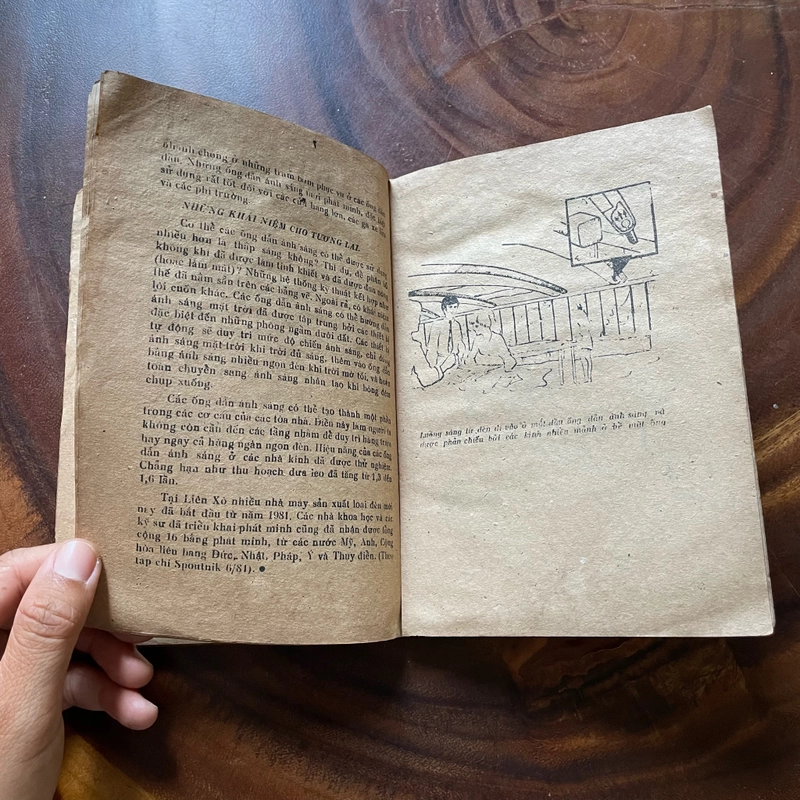 chóng ở những trạm bơm phục vụ ở các ống
dầu. Những ống dẫn ánh sáng
sử dụng rất tốt đối với các cửa hàng lớn, các ga xe lửa
và các phi trường.
NHỮNG KHÁI NIỆM CHO TƯƠNG LAI.
Có thể các ống dẫn ánh sáng có thể được sử dụng
nhiều hơn là thắp sáng không? Thí dụ, để phân
không khí đã được làm tinh khiết và đã được đun nóng
(hoặc làm mát)? Những hệ thống kỹ thuật kết hợp này
thể đã nằm sẵn trên các bảng vẽ. Ngoài ra, có khái niệm
lôi cuốn khác. Các ống dẫn ánh sáng có thể hướng dẫn
ánh sáng mặt trời đã được tập trung bởi các thiết bị
đặc biệt đến những phòng ngầm dưới đất. Các thiết bị
tự động sẽ duy trì mức độ chiếu ánh sáng, chỉ dùng
ánh sáng mặt trời khi trời đủ sáng, thêm vào ống dẫn
bằng ánh sáng nhiều ngọn đèn khi trời mờ tối, và hoàn
toàn chuyển sang ánh sáng nhân tạo khi bóng đêm
chụp xuống.
Các ống dẫn ánh sáng có thể tạo thành một phần
trong các cơ cấu của các tòa nhà. Điều này làm người ta
không còn cần đến các tầng nhằm để duy trì hàng trăm
hay ngay cả hàng ngàn ngọn đèn. Hiệu năng của các ống
dẫn ánh sáng ở các nhà kính đã được thử nghiệm.
Chẳng hạn như thu hoạch dưa leo đã tăng từ 1,3 đến
1,6 lần.
Tại Liên Xô nhiều nhà máy sản xuất loại đèn mới
này đã bắt đầu từ năm 1981. Các nhà khoa học và các
kỹ sư đã triển khai phát minh cũng đã nhận được tổng
cộng 16 bằng phát minh, từ các nước Mỹ, Anh, Cộng
hòa liên bang Đức, Nhật, Pháp, Ý và Thụy điển. (Theo
tạp chí Spoutnik 6/81). ●
Luồng sáng từ đèn đi vào ở một đầu ống dẫn ánh sáng và
được phản chiếu bởi các kính nhiều mảnh ở bề mặt ống